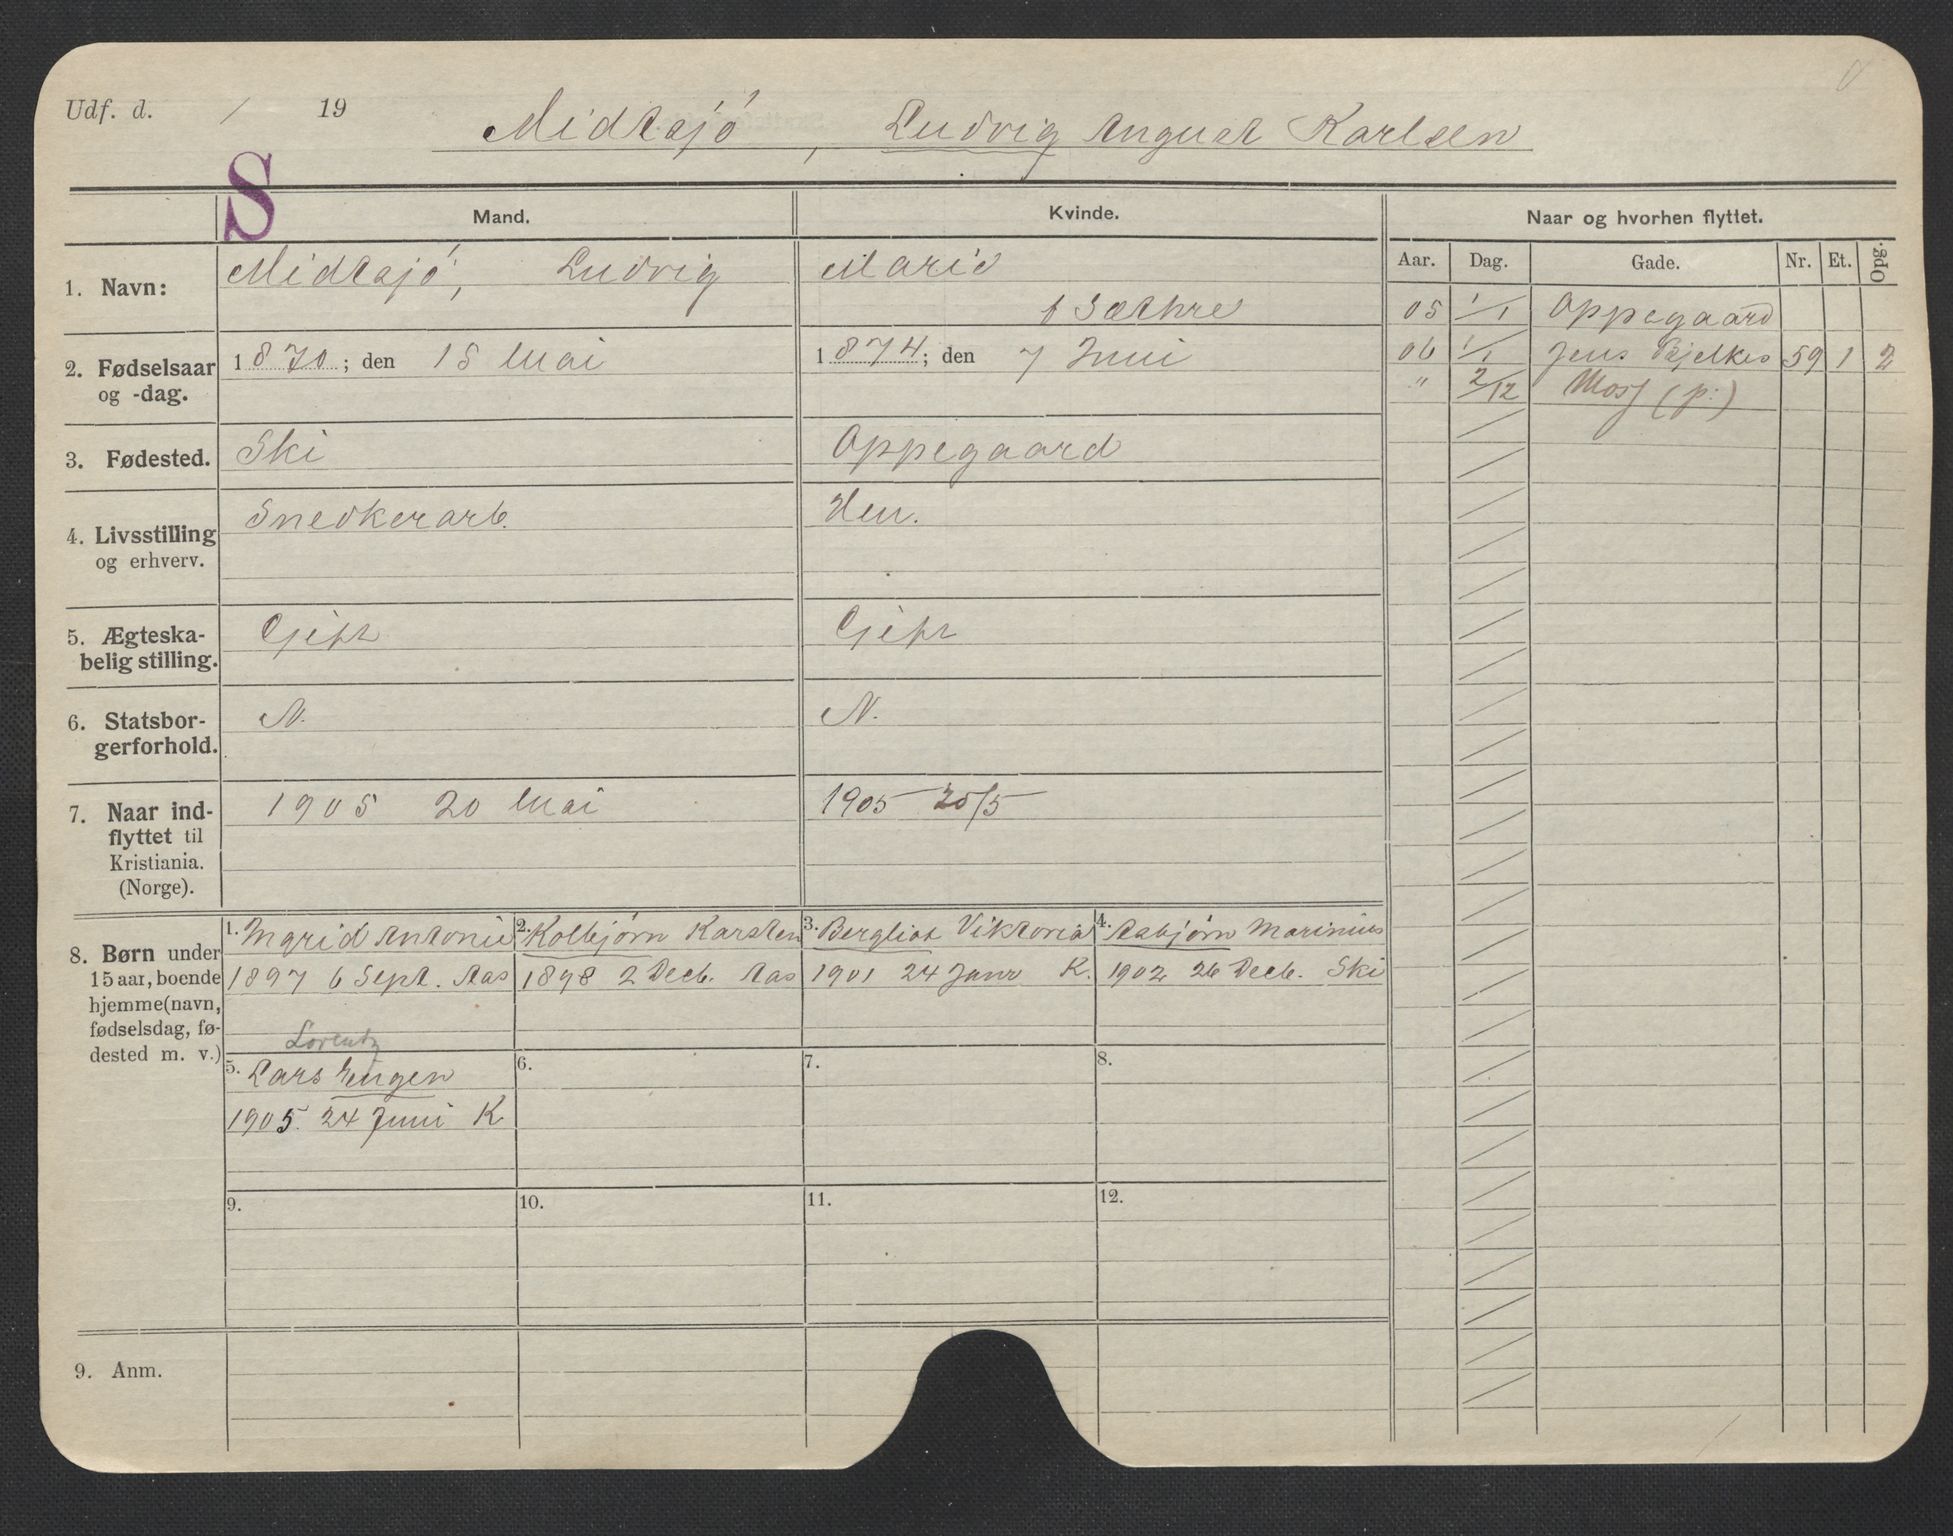 Udf. d. / 19
Midtsjø, Ludvig August Karlsen
S
Mand.
Kvinde.
Naar og hvorhen flyttet.
Aar. Dag. Gade. Nr. Et. Opg.
1. Navn:
Midtsjø, Ludvig
Marie
f Sæthre
2. Fødselsaar
og -dag.
1870; den 15 Mai
1874; den 7 Juni
3. Fødested.
Ski
Oppegaard
4. Livsstilling
og erhverv.
Snedkerarb.
Hen.
5. Ægteska-
belig stilling.
Gift
Gift
6. Statsbor-
gerforhold.
N.
N.
7. Naar ind-
flyttet til
Kristiania.
(Norge).
1905 20 Mai
1905 20/5
05 1/1 Oppegaard
06 1/1 Jens Bjelkes 59 1 2
" 2/12 Moss (p:)
8. Børn under
15 aar, boende
hjemme (navn,
fødselsdag, fø-
dested m. v.)
1. Ingrid Antonie
1897 6 Sept. Aas
2. Kolbjørn Karsten
1898 2 Decb. Aas
3. Bergliot Viktoria
1901 24 Janr K.
4. Asbjørn Marinius
1902 26 Decb. Ski
Lorentz
5. Lars Eugen
1905. 24 Juni K
6.
7.
8.
9.
10.
11.
12.
9. Anm.